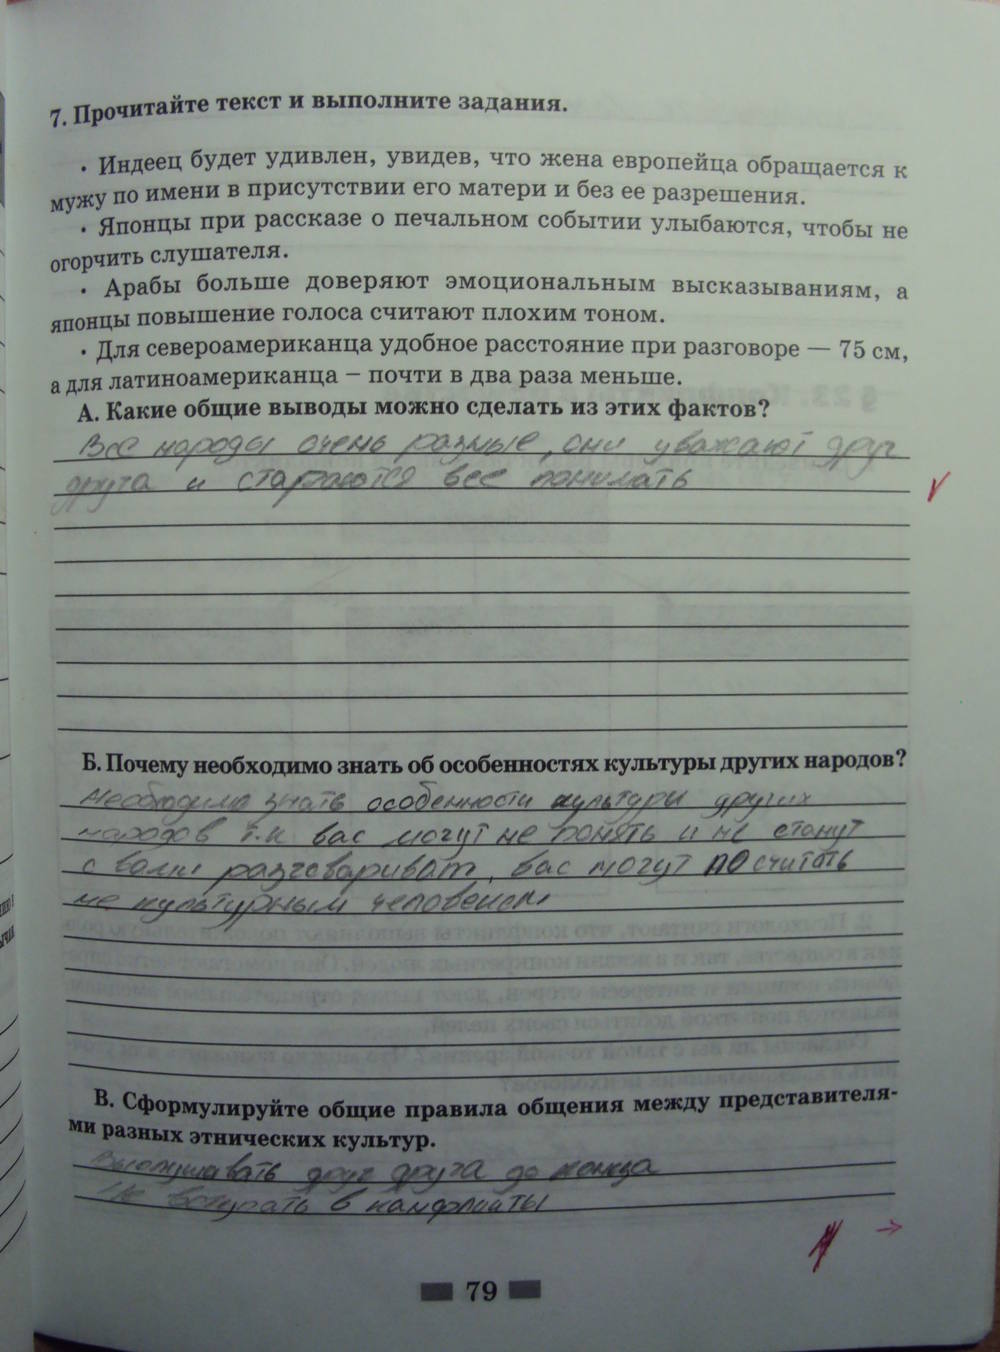 7. Прочитайте текст и выполните задания.
• Индеец будет удивлен, увидев, что жена европейца обращается к
мужу по имени в присутствии его матери и без ее разрешения.
• Японцы при рассказе о печальном событии улыбаются, чтобы не
огорчить слушателя.
• Арабы больше доверяют эмоциональным высказываниям, а
японцы повышение голоса считают плохим тоном.
• Для североамериканца удобное расстояние при разговоре — 75 см,
а для латиноамериканца – почти в два раза меньше.
А. Какие общие выводы можно сделать из этих фактов?
Все народы очень разные, они уважают друг
друга и стараются все понимать
Б. Почему необходимо знать об особенностях культуры других народов?
Необходимо знать особенности культуры других
народов т.к вас могут не понять и не станут
с вами разговариват, вас могут посчитать
не культурным человеком
В. Сформулируйте общие правила общения между представителя-
ми разных этнических культур.
Выслушивать друг друга до конца
Не вступать в канфликты
79